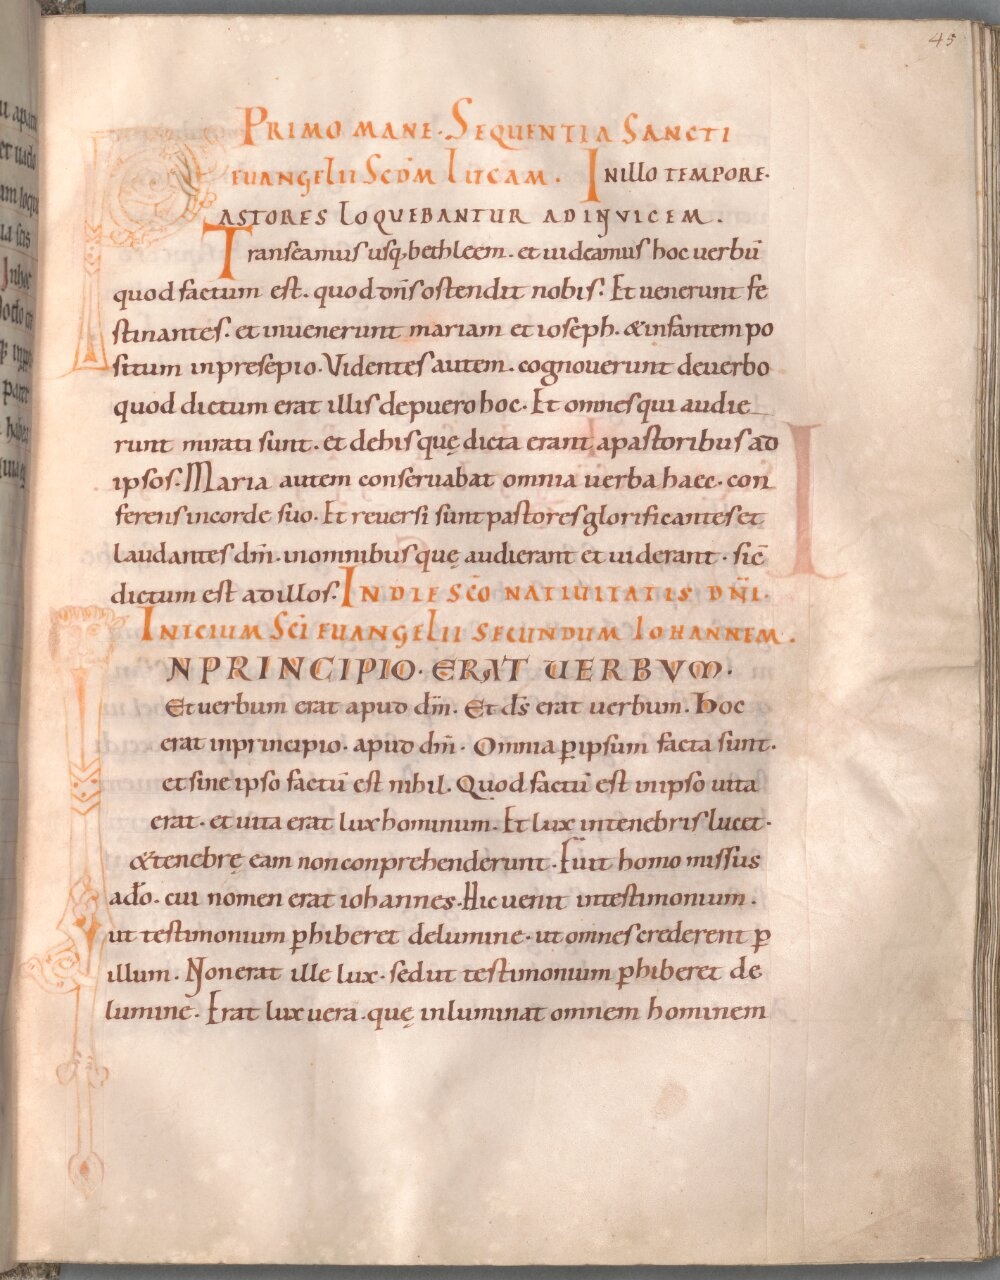 45
PRIMO MANE· SEQUENTIA SANCTI
EUANGELII SCDM LUCAM· IN ILLO TEMPORE·
PASTORES LOQUEBANTUR ADINVICEM·
Transeamus usq; bethleem· et uideamus hoc uerbū
quod factum est· quod dn̄s ostendit nobis· Et uenerunt fe
stinantes· et inuenerunt mariam et ioseph· & infantem po
situm in presepio· Videntes autem· cognouerunt de uerbo
quod dictum erat illis de puero hoc· Et omnes qui audie
runt mirati sunt· et de his quę dicta erant a pastoribus ad
ipsos· Maria autem conseruabat omnia uerba haec· con
ferens in corde suo· Et reuersi sunt pastores glorificantes et
laudantes dm̄· in omnibus quę audierant et uiderant· sic̄
dictum est ad illos· IN DIE SCŌ NATIUITATIS DN̄I·
INICIUM SC̄I EUANGELII SECUNDUM IOHANNEM·
IN PRINCIPIO· ERAT UERBVM·
Et uerbum erat apud dm̄· Et ds̄ erat uerbum· Hoc
erat in principio· apud dm̄· Omnia ꝑ ipsum facta sunt·
et sine ipso factū est nihil· Quod factū est in ipso uita
erat· et uita erat lux hominum· Et lux in tenebris lucet·
& tenebrę eam non conprehenderunt· Fuit homo missus
a dō· cui nomen erat iohannes· Hic uenit in testimonium·
ut testimonium ꝑhiberet de lumine· ut omnes crederent ꝑ
illum· Non erat ille lux· sed ut testimonium ꝑhiberet de
lumine· Erat lux uera· quę inluminat omnem hominem